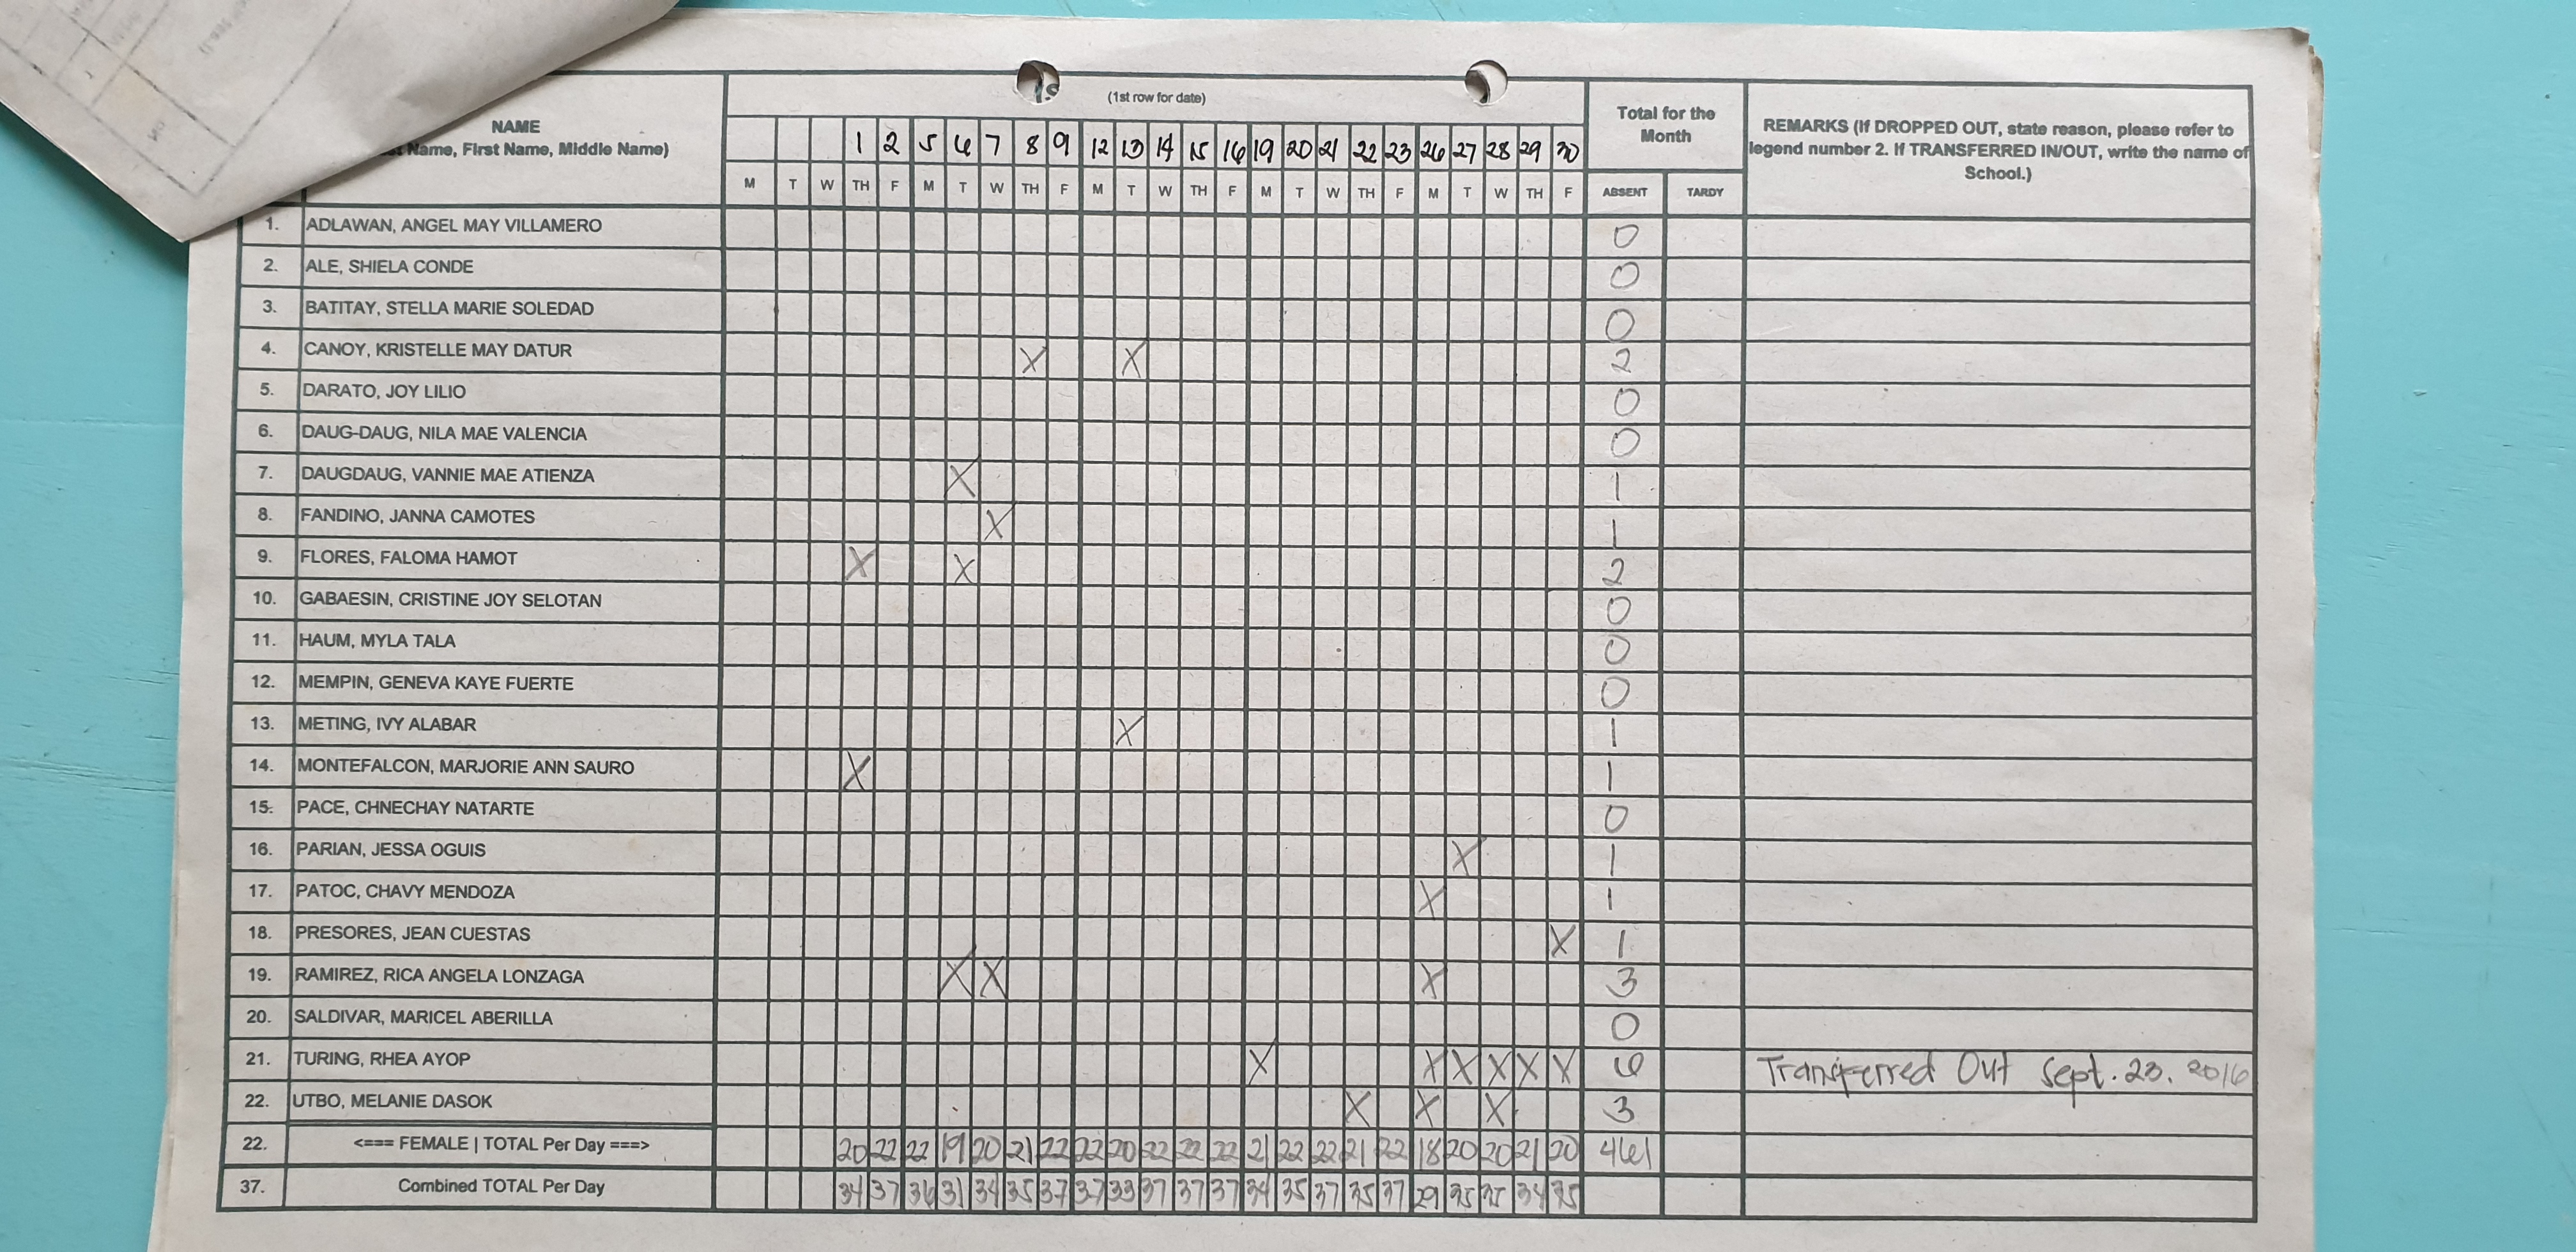 (1st row for date)
NAME
Name, First Name, Middle Name)
Total for the Month
REMARKS (If DROPPED OUT, state reason, please refer to legend number 2. If TRANSFERRED IN/OUT, write the name of School.)
1 2 5 6 7 8 9 12 13 14 15 16 19 20 21 22 23 26 27 28 29 30
M T W TH F M T W TH F M T W TH F M T W TH F M T W TH F ABSENT TARDY
1. ADLAWAN, ANGEL MAY VILLAMERO 0
2. ALE, SHIELA CONDE 0
3. BATITAY, STELLA MARIE SOLEDAD 0
4. CANOY, KRISTELLE MAY DATUR X X 2
5. DARATO, JOY LILIO 0
6. DAUG-DAUG, NILA MAE VALENCIA 0
7. DAUGDAUG, VANNIE MAE ATIENZA X 1
8. FANDINO, JANNA CAMOTES X 1
9. FLORES, FALOMA HAMOT X X 2
10. GABAESIN, CRISTINE JOY SELOTAN 0
11. HAUM, MYLA TALA 0
12. MEMPIN, GENEVA KAYE FUERTE 0
13. METING, IVY ALABAR X 1
14. MONTEFALCON, MARJORIE ANN SAURO X 1
15. PACE, CHNECHAY NATARTE 0
16. PARIAN, JESSA OGUIS X 1
17. PATOC, CHAVY MENDOZA X 1
18. PRESORES, JEAN CUESTAS X 1
19. RAMIREZ, RICA ANGELA LONZAGA X X X 3
20. SALDIVAR, MARICEL ABERILLA 0
21. TURING, RHEA AYOP X X X X X X 6 Transferred Out Sept. 23. 2016
22. UTBO, MELANIE DASOK X X X 3
22. <=== FEMALE | TOTAL Per Day ===> 20 22 22 19 20 21 22 22 20 22 22 22 21 22 22 21 22 18 20 20 21 20 461
37. Combined TOTAL Per Day 34 37 36 31 34 35 37 37 33 37 37 37 34 35 37 35 37 29 35 35 34 35